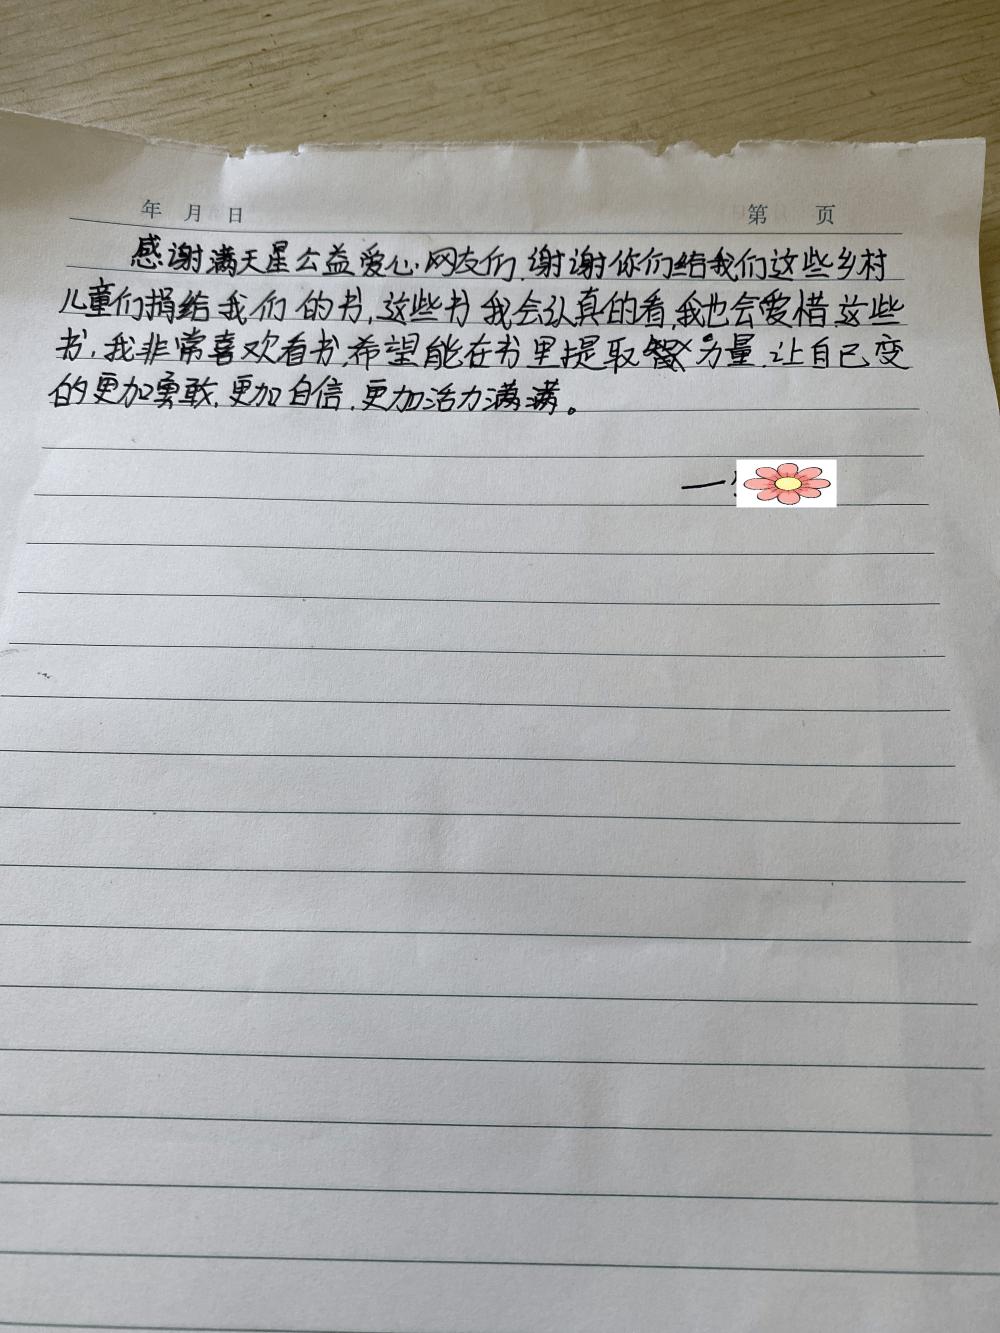 年 月 日 第 页
感谢满天星公益爱心网友们,谢谢你们给我们这些乡村
儿童们捐给我们的书,这些书我会认真的看,我也会爱惜这些
书,我非常喜欢看书,希望能在书里提取力量,让自己变
的更加勇敢,更加自信,更加活力满满。